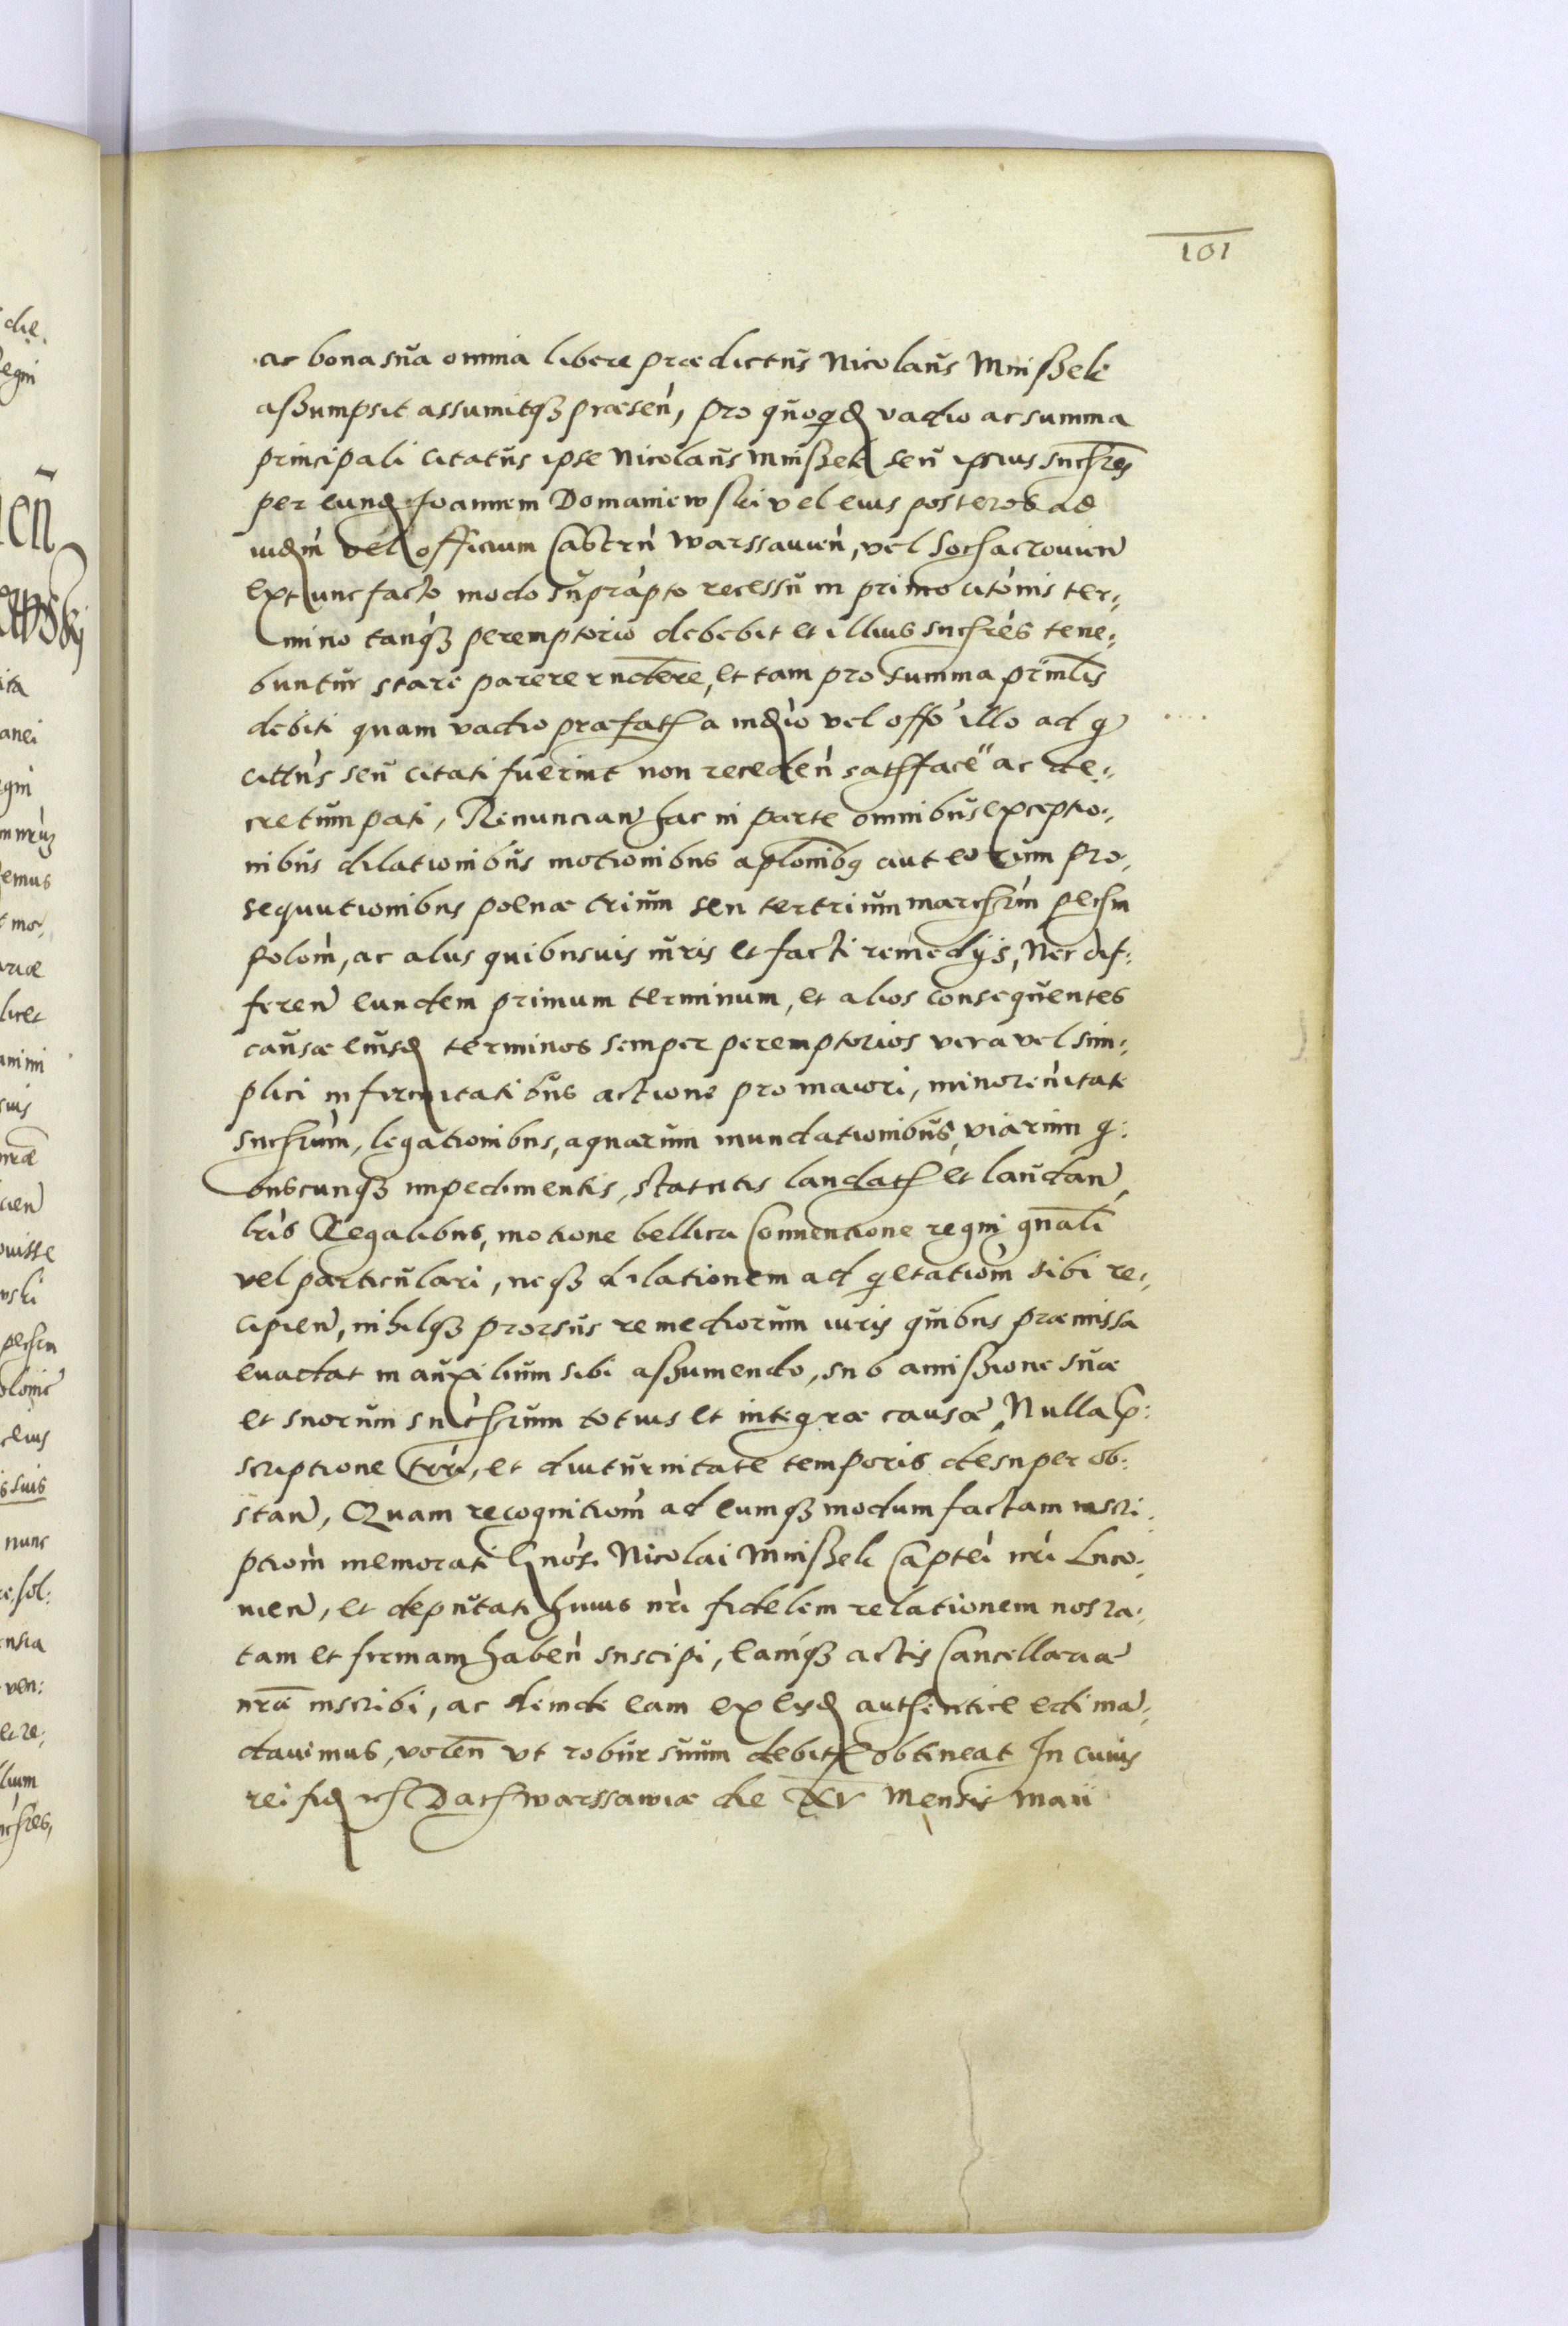 101
ac bona sua omnia libere prædictus Nicolaus Mnißek
aßumpsit assumitq₃ præsen̄, pro quoqd vadio ac summa
principali citatus ipse Nicolaus Mnißek seu ipsius sucħres
per eund Joannem Domaniewski vel eius posteros ad
iudm̄ vel officium Castrn̄ Warssavien̄, vel Sochaczovien̄
ex tunc facto modo suprapto recessu in primo citōnis ter:
mino tanq₃ peremptorio debebit et illius sucħres tene:
buntur stare parere rn̄dere, et tam pro summa prin̄lis
debiti quam vadio præfatħ a iudio vel offo illo ad q
citt̄us seu citati fuerint non receden̄ satħface ac de:
cretum pati, Renuncian̄ hac in parte omnibus exceptio:
nibus dilationibus motionibus aplōnibq aut eorum pro:
sequutionibus poenæ trium seu ter trium marcħrm pecħin
polon̄, ac alijs quibusuis iuris et facti remedijs, Nec dif:
feren̄ eundem primum terminum, et alios consequentes
causæ eiusd terminos semper peremptorios vera vel sim:
plici infirmitatibus actione pro maiori, minorenitate
sucħrum, legationibus, aquarum inundationibus, viarum q:
buscunq₃ impedimentis, statutis laudatħ et laudan̄,
lr̄is Regalibus, motione bellica Conuentione regni gn̄ali
vel particulari, neq₃ dilationem ad qietatiom̄ sibi re:
cipien̄, nihilq₃ prorsus remediorum iuris quibus præmissa
euadat in auxilium sibi aßumendo, sub amißione suæ
et suorum sucħrum totius et integræ causæ, Nulla p:
scriptione trri, et diuturnitate temporis desuper ob:
stan̄, Quam recognitiom̄ ad eumq₃ modum factam inscri:
ptiom̄ memorati Gnosi Nicolai Mnißek Captei nri Luco:
uien̄, et deputati huius nri fidelem relationem nos ra:
tam et firmam haben̄ suscipi, eamq₃ actis Cancellariæ
nr̄æ inscribi, ac deinde eam ex eisd authentice edi ma:
dauimus, volen̄ vt robur suum debite obtineat In cuius
rei fid rħ Datħ Warssawiæ die XV Mensis Maii